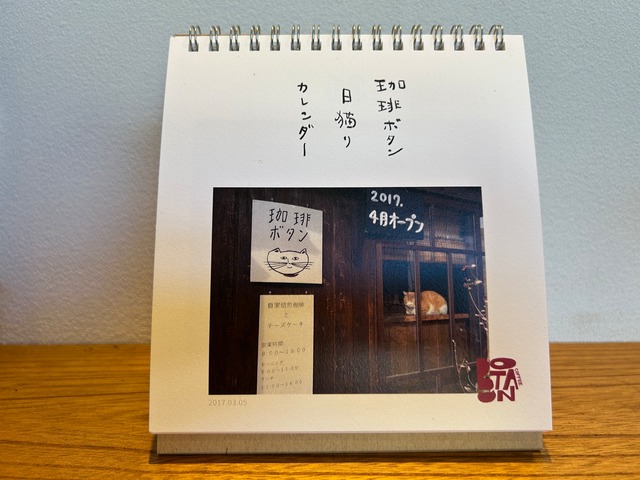 珈琲ボタン
日猫り
カレンダー
珈琲
ボタン
2017.
4月オープン
自家焙煎珈琲
と
チーズケーキ
営業時間
モーニング
ランチ
BOTAN
COFFEE
2017.03.05